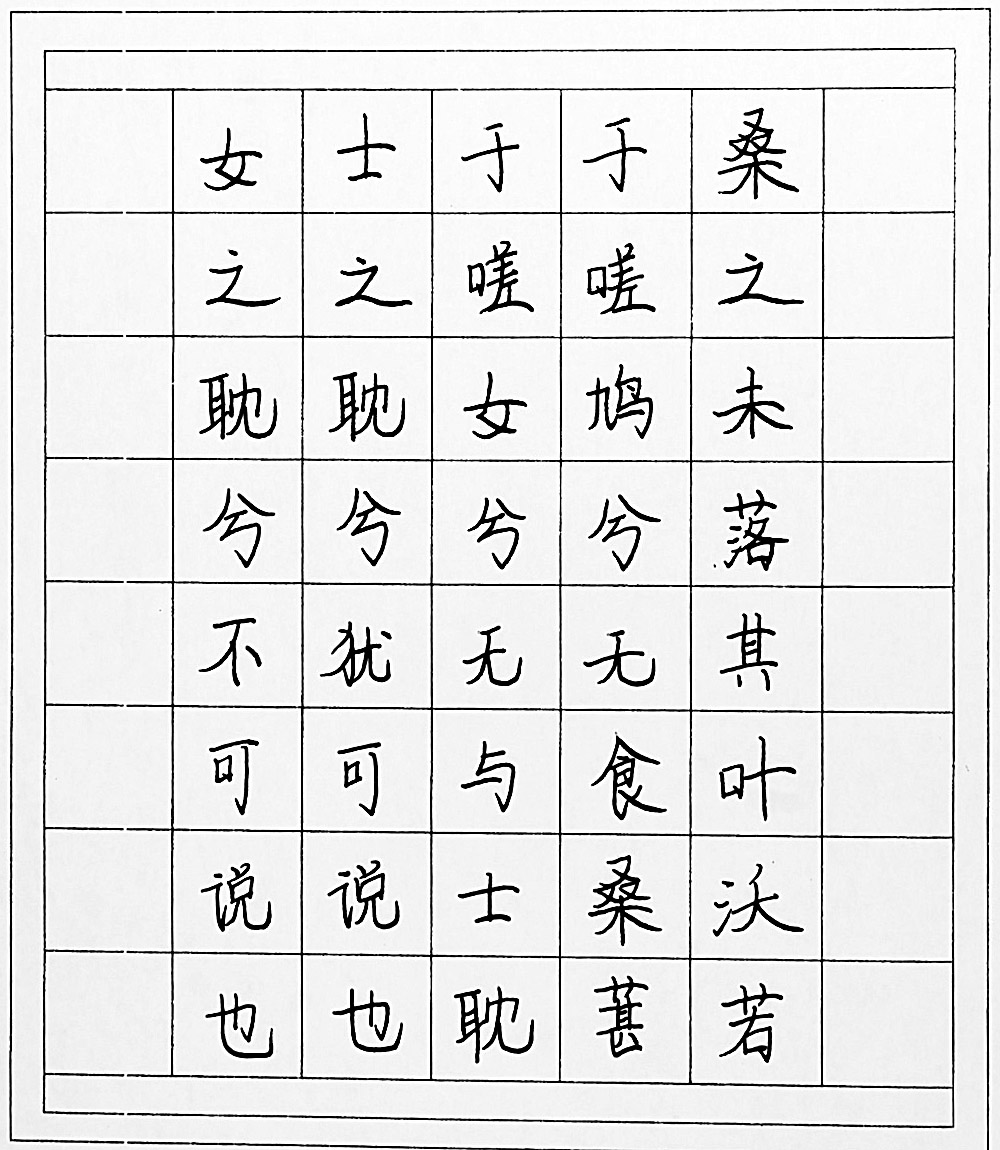 桑之未落其叶沃若
于嗟鸠兮无食桑葚
于嗟女兮无与士耽
士之耽兮犹可说也
女之耽兮不可说也